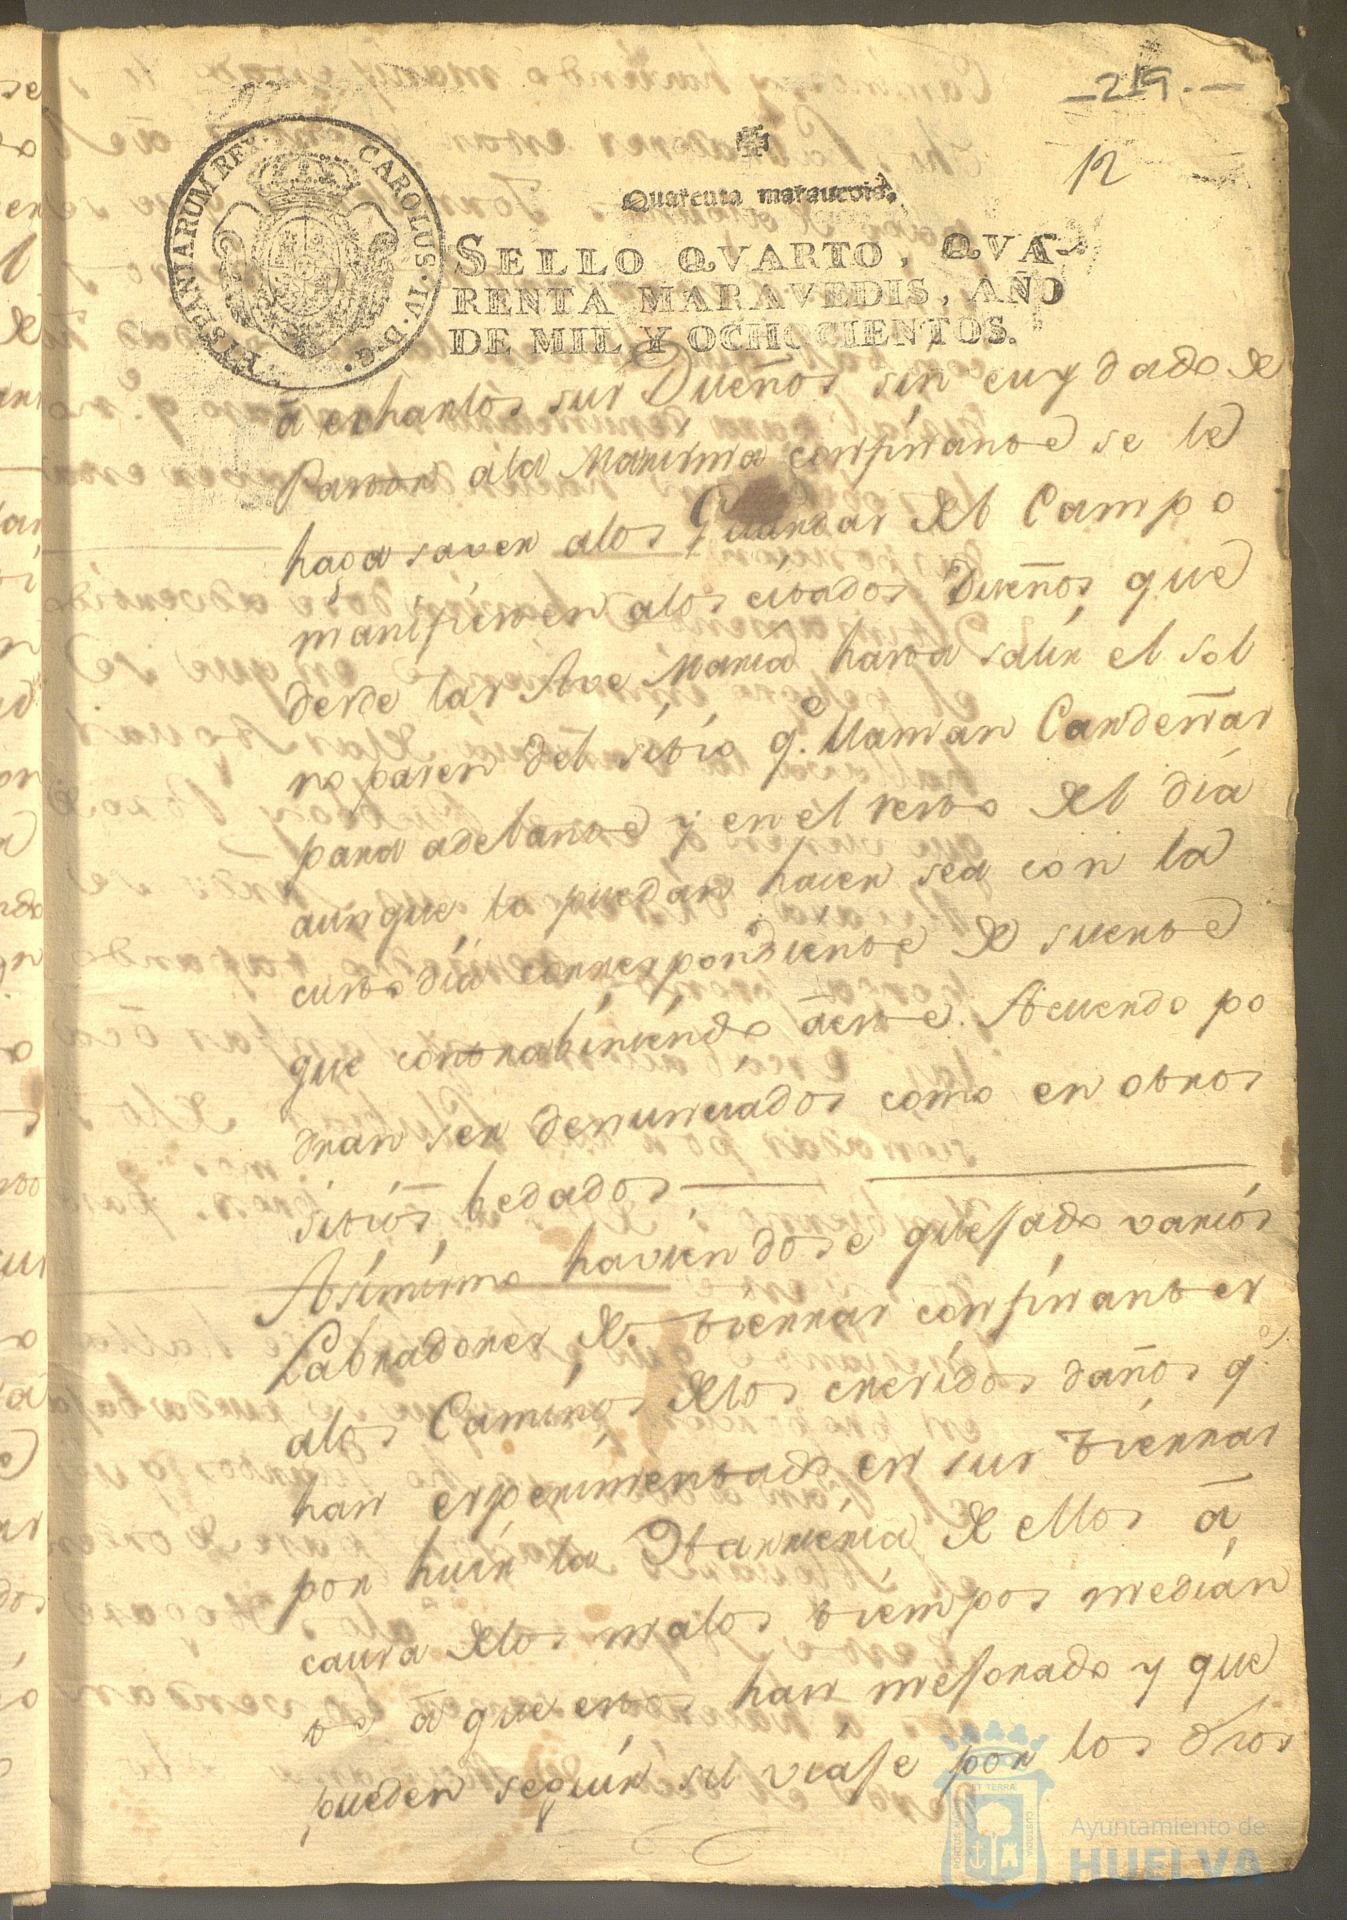 -219.-
12
Quarenta maravedis.
CAROLUS·IV·D·G· ET ISPANIARUM REX·
SELLO QVARTO, QVA-
RENTA MARAVEDIS, AÑO
DE MIL Y OCHOCIENTOS.
á echarlos sus Dueños sin cuydado de
Pastor ala Marisma confinante se le
haga saver alos Guardas del Campo
manifiesten alos citados Dueños, que
desde las Ave Maria hasta salir el sol
no pasen del sitio q.e llaman Cardeñas
para adelante y en el resto del dia
aunque lo puedan hacer sea con la
custodia correspondiente de suerte
que contrabiniendo á este Acuerdo po
dran ser denunciados como en otros
sitios bedados
Asimismo haviendose quejado varios
Labradores de tierras confinantes
alos Caminos delos crecidos daños q.e
han experimentado en sus tierras
por huir la Harrieria de ellos á
causa delos malos tiempos median
te á que estos han mejorado y que
pueden seguir su viaje por los dhos
Ayuntamiento de
HUELVA